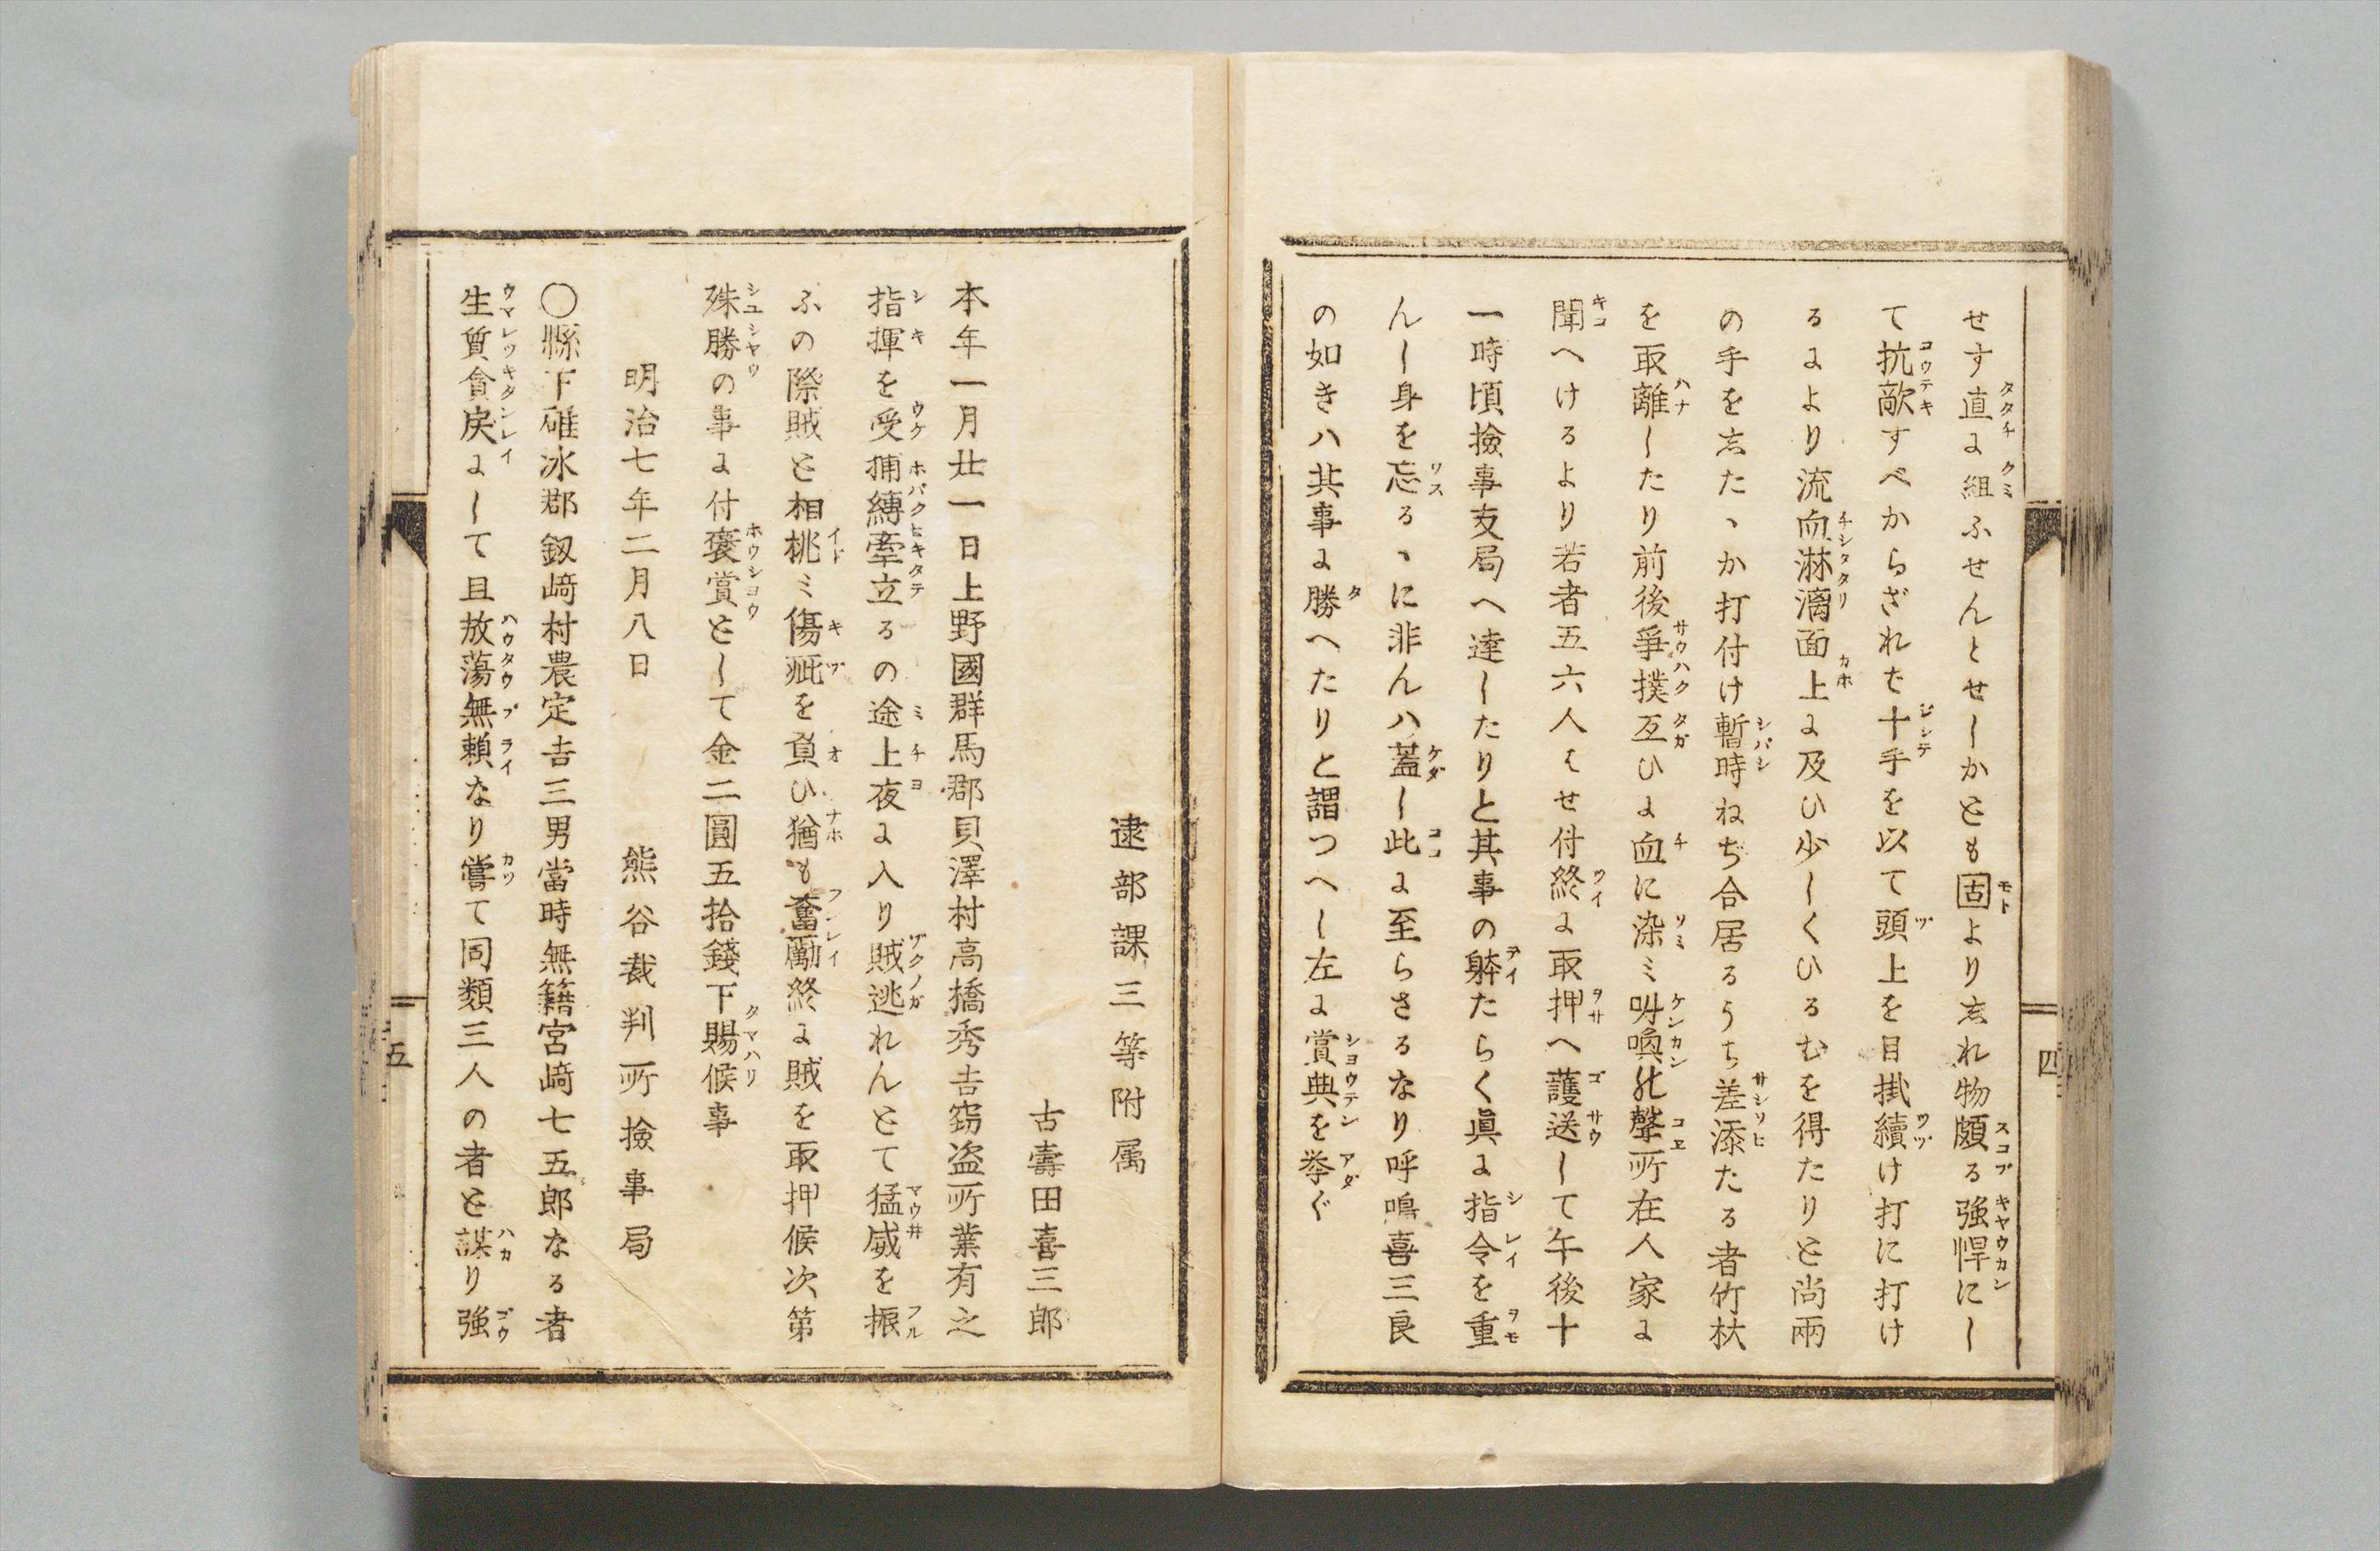 せす直に組ふせんとせしかとも固より志れ物頗る強悍にし
て抗敵すべからざれば十手を以て頭上を目掛續け打に打け
るにより流血淋漓面上に及ひ少しくひるむを得たりと尚兩
の手を志たゝか打付け暫時ねぢ合居るうち差添たる者竹杖
を取離したり前後爭撲互ひに血に染ミ呌喚の聲所在人家に
聞へけるより若者五六人はせ付終に取押へ護送して午後十
一時頃撿事支局へ達したりと其事の躰たらく眞に指令を重
んし身を忘るゝに非んハ蓋し此に至らさるなり呼嗚喜三良
の如きハ其事に勝へたりと謂つへし左に賞典を挙ぐ
四
逮部課三等附属
古壽田喜三郎
本年一月廿一日上野國群馬郡貝澤村高橋秀吉窃盗所業有之
指揮を受捕縛牽立るの途上夜に入り賊逃れんとて猛威を振
ふの際賊と相桃ミ傷疵を負ひ猶も奮勵終に賊を取押候次第
殊勝の事に付褒賞として金二圓五拾錢下賜候事
明治七年二月八日　熊谷裁判所撿事局
〇縣下碓氷郡釼﨑村農定吉三男當時無籍宮﨑七五郎なる者
生質貪戻にして且放蕩無頼なり嘗て同類三人の者と謀り強
五